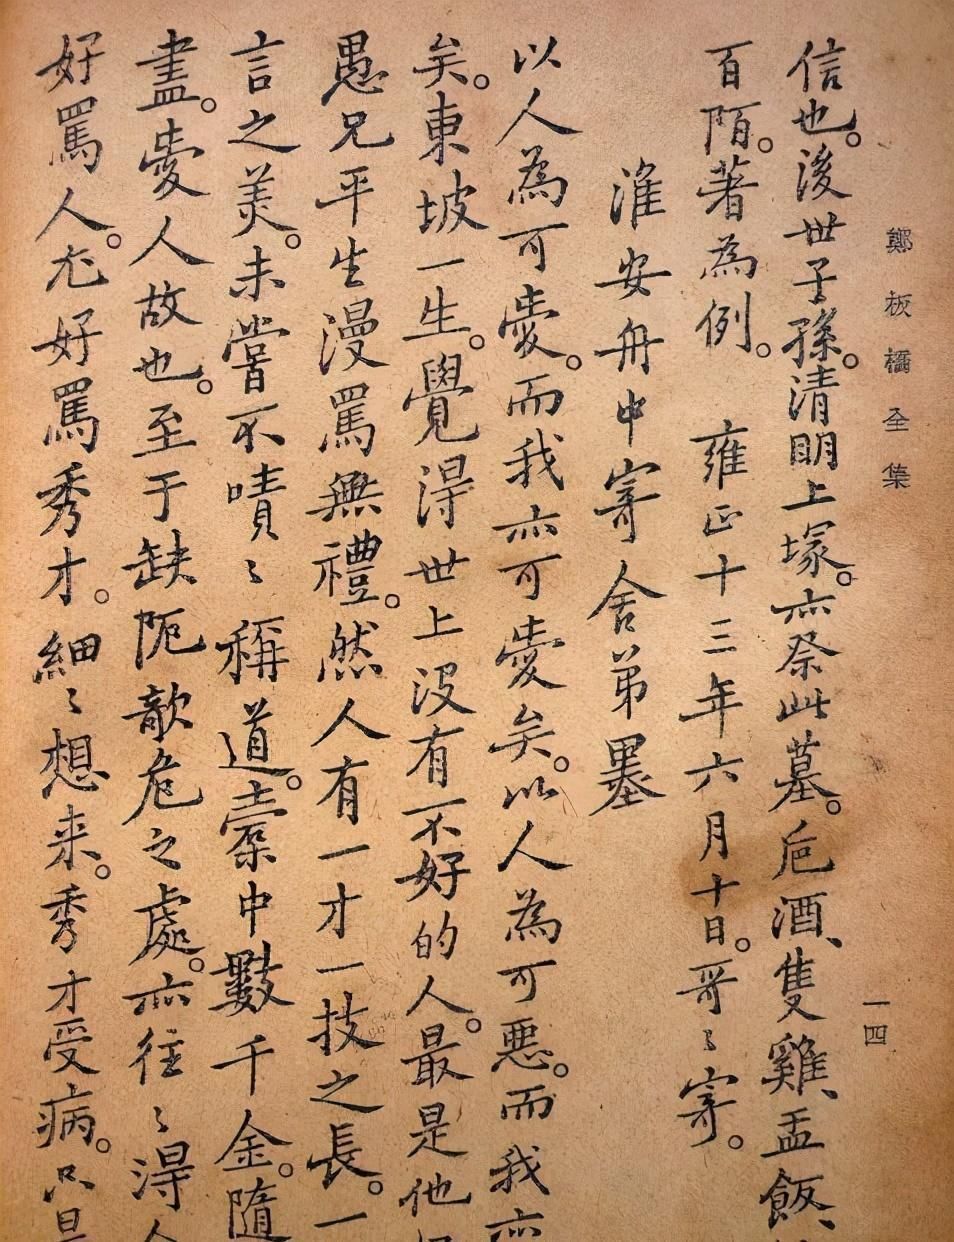 鄭板橋全集
一四
信也。後世子孫。清明上塚。亦祭此墓。卮酒、隻雞、盂飯、
百陌。著為例。 雍正十三年六月十日。哥〻寄。
淮安舟中寄舍弟墨
以人為可愛。而我亦可愛矣。以人為可惡。而我亦
矣。東坡一生。覺得世上沒有不好的人。最是他
愚兄平生漫罵無禮。然人有一才一技之長。一
言之美。未嘗不嘖〻稱道。橐中數千金。隨
盡。愛人故也。至于缺阨欹危之處。亦往〻得人
好罵人。尤好罵秀才。細〻想來。秀才受病。只是